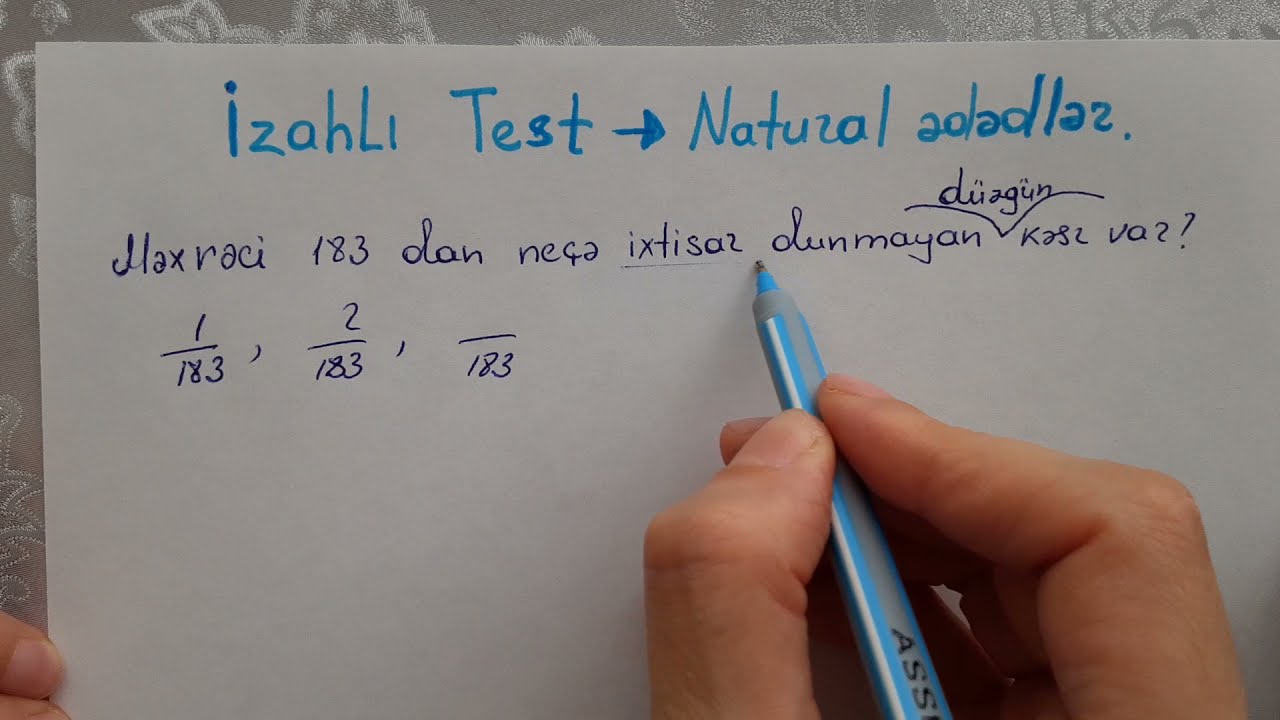 İzahlı Test → Natural ədədlər.
düzgün
Məxrəci 183 dan neçə ixtisar olunmayan kəsr var?
1/183, 2/183, /183
ASS